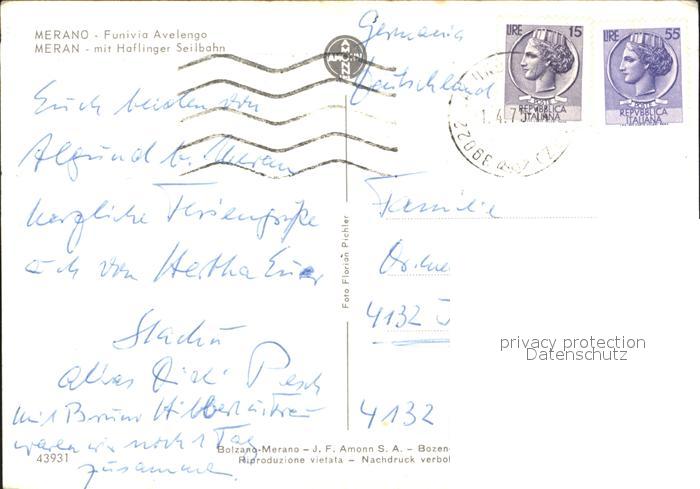 MERANO - Funivia Avelengo
MERAN - mit Haflinger Seilbahn
AMONN
Germania
Deutschland
LIRE 15
REPVBBLICA
ITALIANA
LIRE 55
REPVBBLICA
ITALIANA
1. 4. 7
39022
Euch beiden von
Algund b. Meran
herzliche Feriengrüße
auch von Hertha
mit Bruno
waren wir noch 1 Tag
zusammen.
Familie
4132
4132
Foto Florian Pichler
privacy protection
Datenschutz
Bolzano-Merano – J. F. Amonn S. A. – Bozen-
Riproduzione vietata – Nachdruck verbot
43931